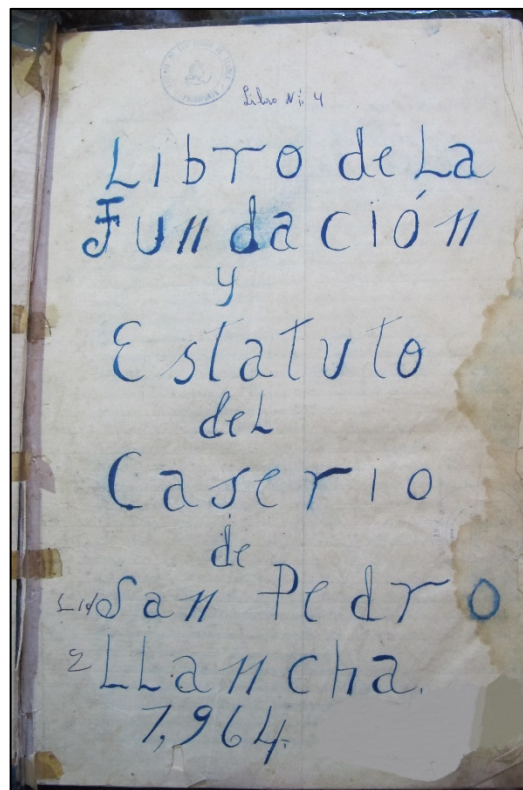 Libro Nº 4
Libro de La
Fundación
y
Estatuto
del
Caserio
de
San Pedro
LLancha.
1,964.